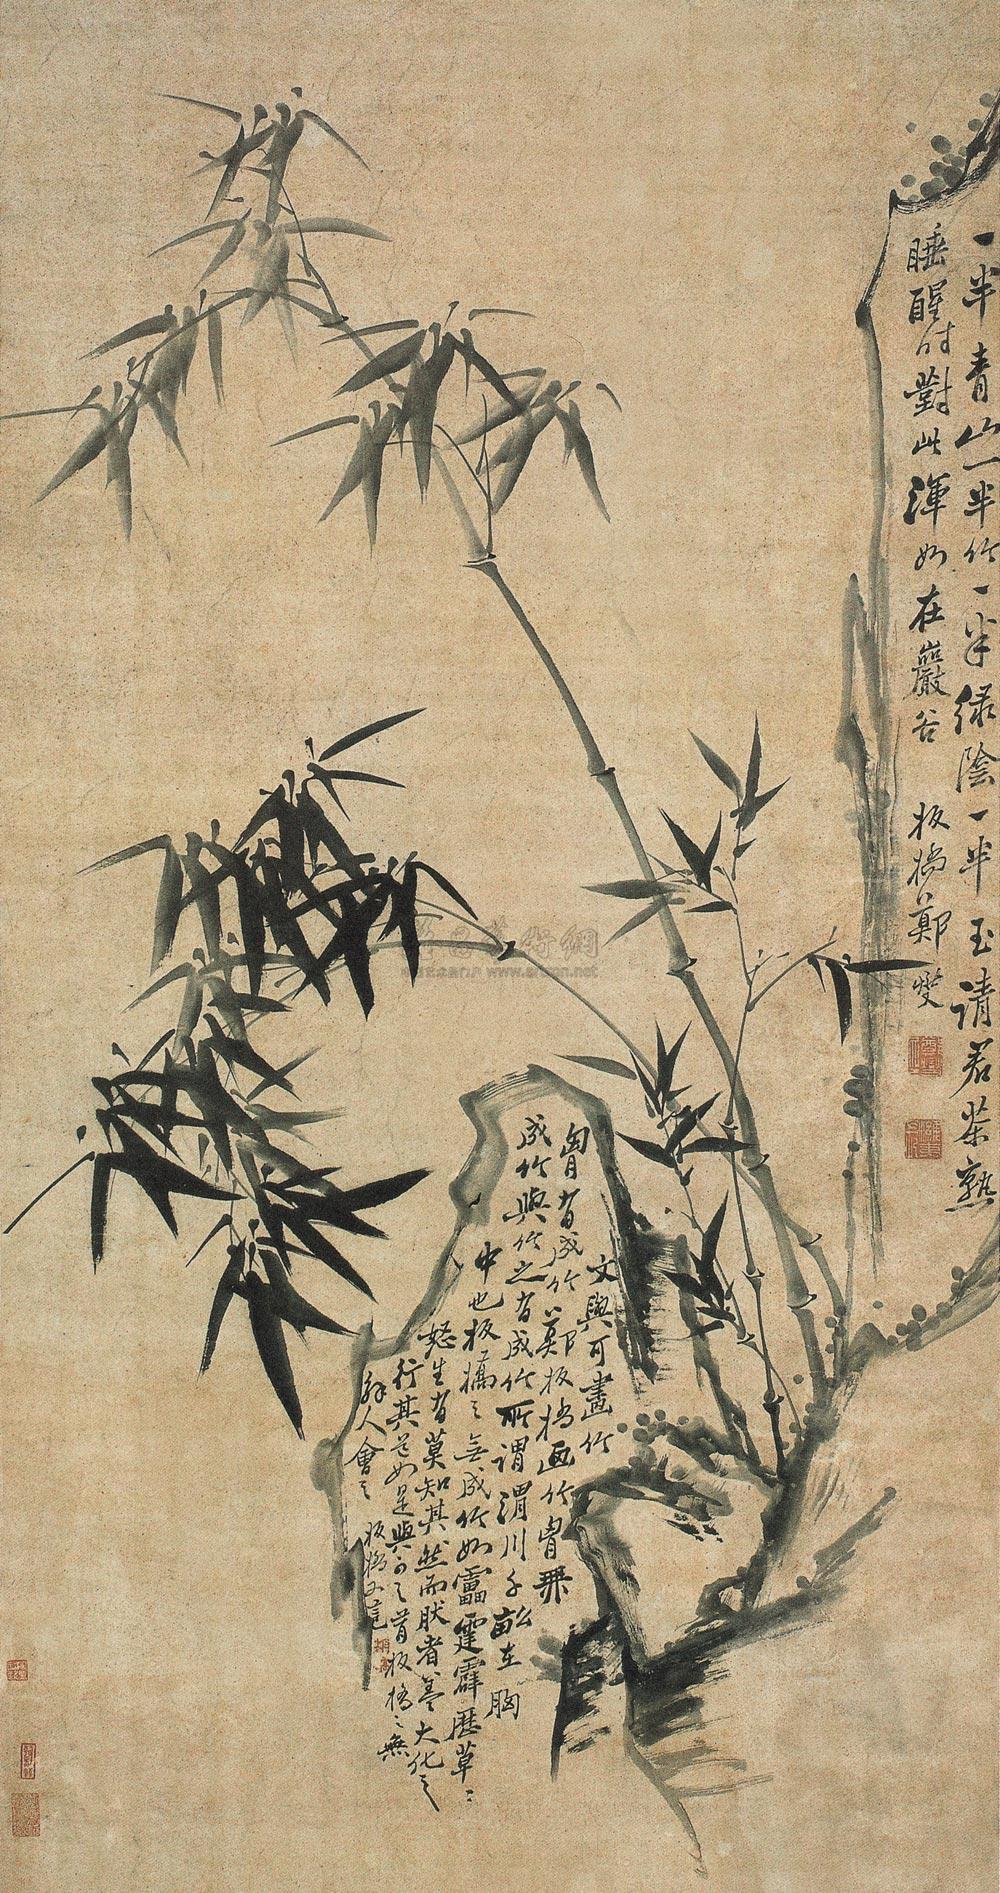 一半青山一半竹一半緑陰一半玉請君茶熟
睡醒时對此渾如在巖谷 板橋鄭燮
文與可畫竹
胷有成竹鄭板橋画竹胷無
成竹與可之有成竹所謂渭川千畝在胸
中也板橋之無成竹如雷霆霹歷草草
怒生有莫知其然而然者蓋大化之
行其道如是與可之有板橋之無
解人會之 板橋又